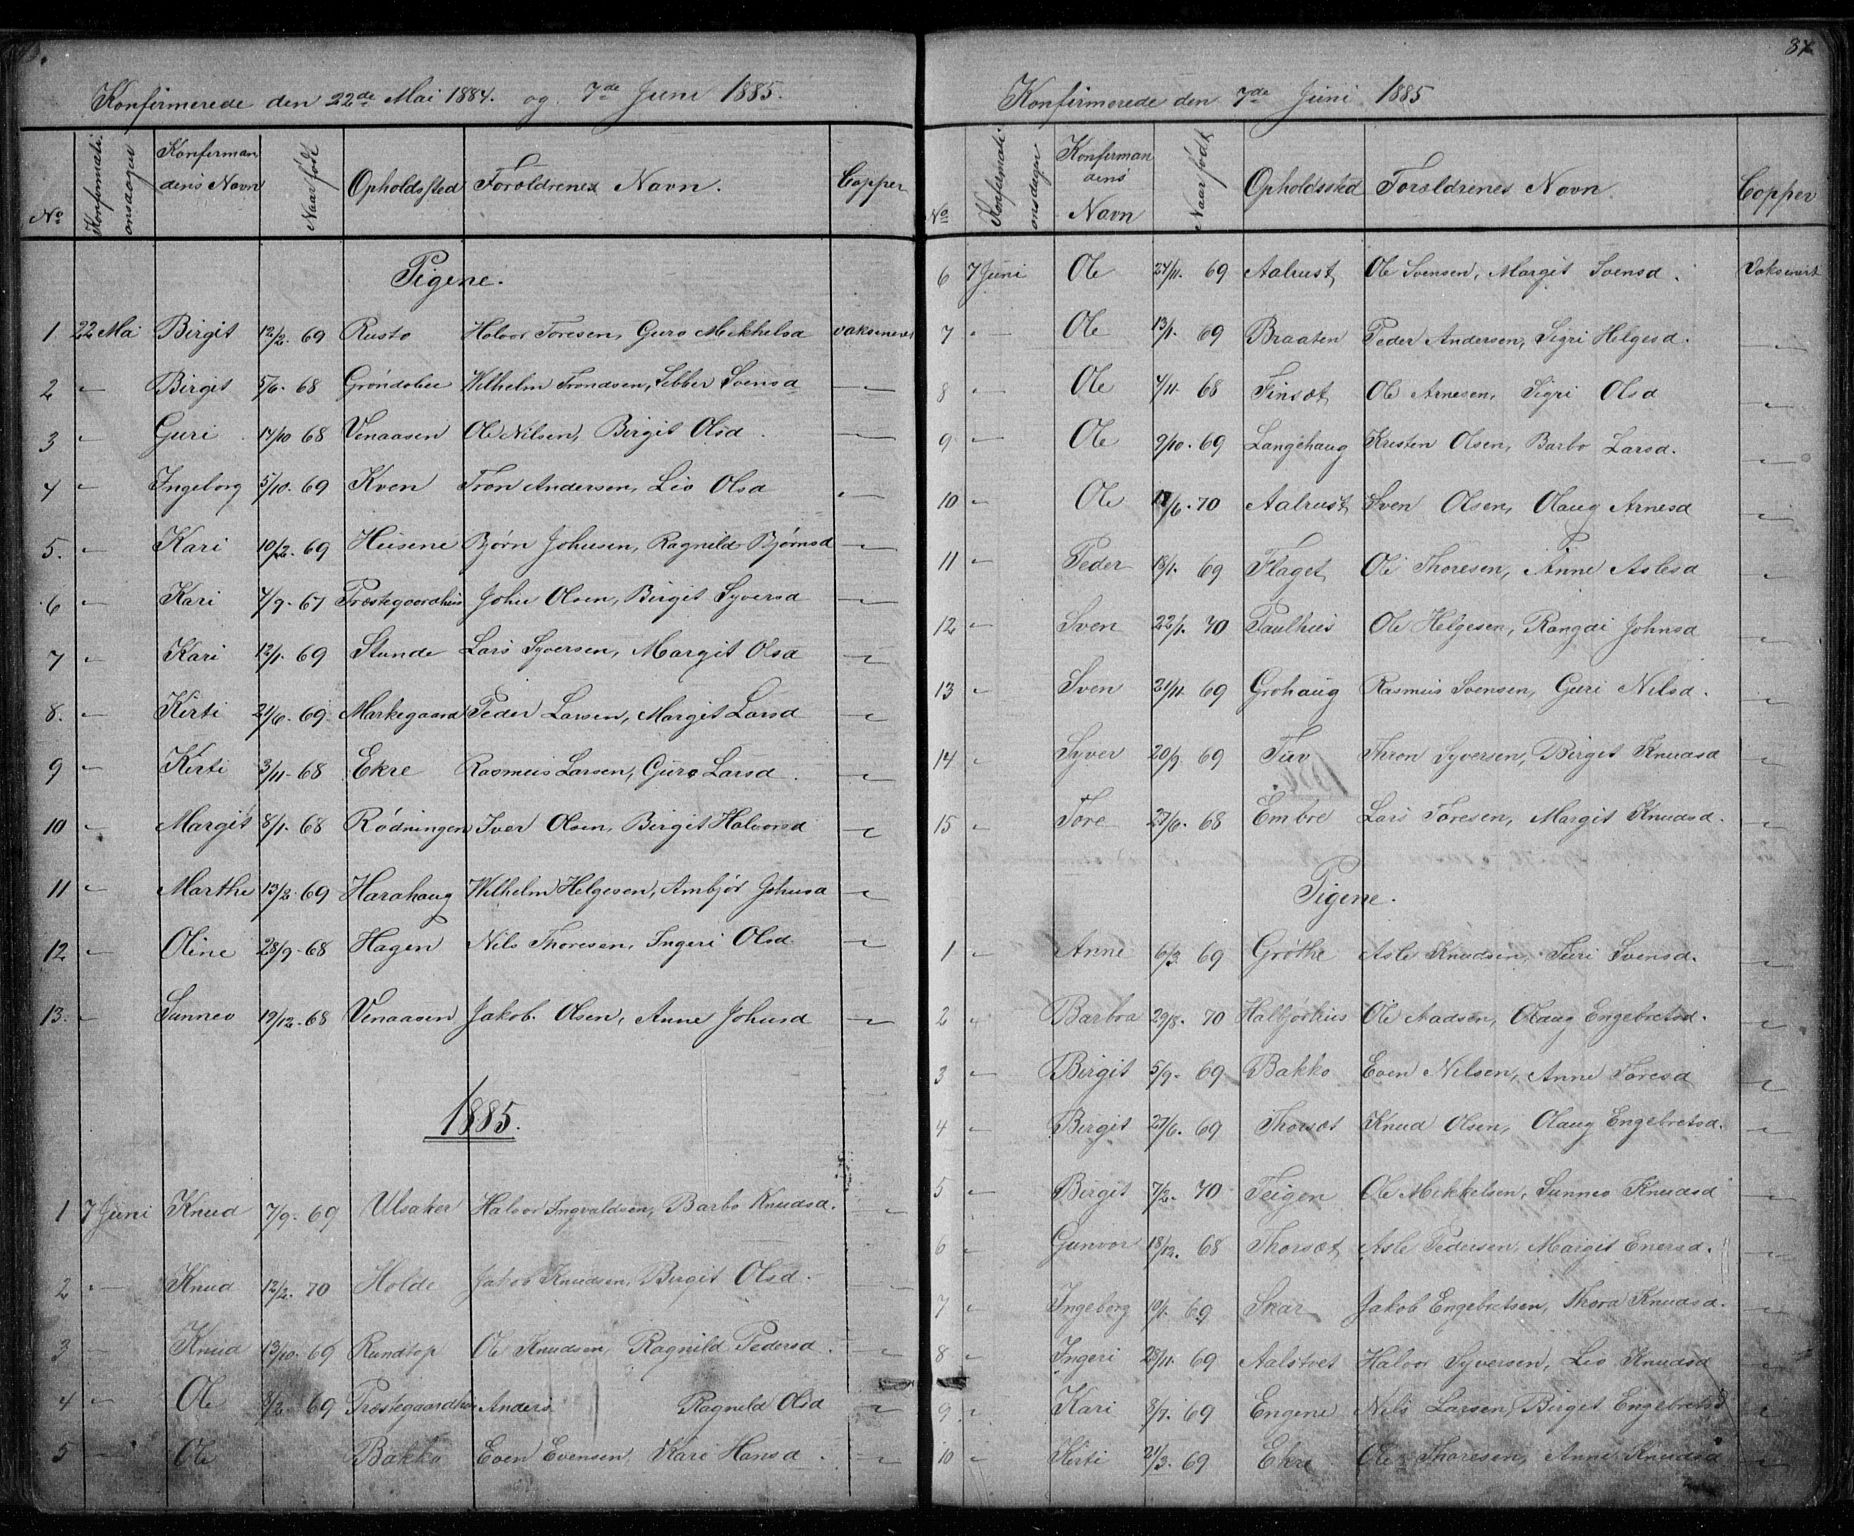 Konfirmerede den 22de Mai 1884. og 7de Juni 1885.
No Konfirmationsdagen Konfirmandens Navn Naar født Opholdssted Forældrenes Navn. Copper
Pigene.
1 22 Mai Birgit 12/2. 69 Rusto Halvor Toresen, Guro Mikkelsd vaksineret
2 " Birgit 5/6. 68 Grøndalee Wilhelm Trondsen, Sebber Svensd "
3 " Guri 14/10 68 Venaasen Ole Nilsen, Birgit Olsd. "
4 " Ingeborg 5/10. 69 Kven Tron Andersen, Liv Olsd "
5. " Kari 10/2. 69 Heisene Bjørn Johnsen, Ragnild Bjørnsd "
6 " Kari 7/9. 67 Præstegaardhus John Olsen, Birgit Syversd "
7 " Kari 12/1. 69 Stunde Lars Syversen, Margit Olsd "
8. " Kirti 21/6. 69 Markegaard Peder Larsen, Margit Larsd "
9 " Kirti 3/11. 68 Ekre Rasmus Larsen, Guro Larsd. "
10 " Margit 8/1. 68 Rødningen Iver Olsen, Birgit Halvorsd "
11 " Marthe 13/2. 69 Harahaug Wilhelm Helgesen, Ambjør Johnsd "
12 " Oline 28/9. 68 Hagen Nils Thoresen, Ingeri Olsd "
13. " Sunnev 19/12. 68 Venaasen Jakob Olsen, Anne Johnsd "
1885.
1 7 Juni Knud 7/9. 69 Ulsaker Halvor Ingvaldsen, Barbo Knudsd. "
2 " Knud 12/2. 70 Holde Jakob Knudsen, Birgit Olsd. "
3 " Knud 13/10. 69 Rundtop Ole Knudsen, Ragnild Pedersd. "
4 " Ole 8/2. 69 Præstegaardhus Anders Ragnild Olsd "
5 " Ole Bakko Even Evensen, Kari Hansd. "
37.
Konfirmerede den 7de Juni 1885
No Konfirmationsdagen Konfirmandens Navn Naar født Opholdssted Forældrenes Navn. Copper
6 7 Juni Ole 24/11. 69 Aalrust Ole Svensen, Margit Svensd. Vaksinert
7 " Ole 13/1. 69 Braaten Peder Andersen, Sigri Helgesd. "
8 " Ole 4/11. 68 Finsæt Ole Arnesen, Sigri Olsd "
9 " Ole 9/10. 69 Langehaug Kristen Olsen, Barbo Larsd. "
10 " Ole 17/6. 70 Aalrust Sven Olsen, Olaug Arnesd "
11 " Peder 18/1. 69 Flaget Ole Thoresen, Anne Aslesd "
12 " Sven 22/1. 70 Paulhus Ole Helgesen, Rangdi Johnsd "
13 " Sven 21/11. 69 Grohaug Rasmus Svensen, Guri Nilsd. "
14 " Syver 20/9. 69 Tuv Thron Syversen, Birgit Knudsd "
15 " Tore 27/6. 68 Embre Lars Toresen, Margit Knudsd. "
Pigene.
1 " Anne 6/3. 69 Grøthe Asle Knudsen, Turi Svensd. "
2 " Barbra 29/8. 70 Halbjørhus Ole Aadsen, Olaug Engebretsd. "
3 " Birgit 5/9. 69 Bakko Even Nilsen, Anne Toresd "
4 " Birgit 27/6. 69 Thorsæt Knud Olsen, Olaug Engebretsd. "
5 " Birgit 7/2. 70 Teigen Ole Mikkelsen, Sunnev Knudsd "
6 " Gunvor 18/12. 68 Thorsæt Asle Pedersen, Margit Enersd. "
7 " Ingeborg 10/1. 69 Skar Jakob Engebretsen, Thora Knudsd. "
8 " Ingeri 28/11. 69 Aalstvet Halvor Syversen, Liv Knudsd "
9 " Kari 8/7. 69 Engene Nils Larsen, Birgit Engebretsd "
10 " Kirti 21/3. 69 Ekre Ole Thoresen, Anne Knudsd "